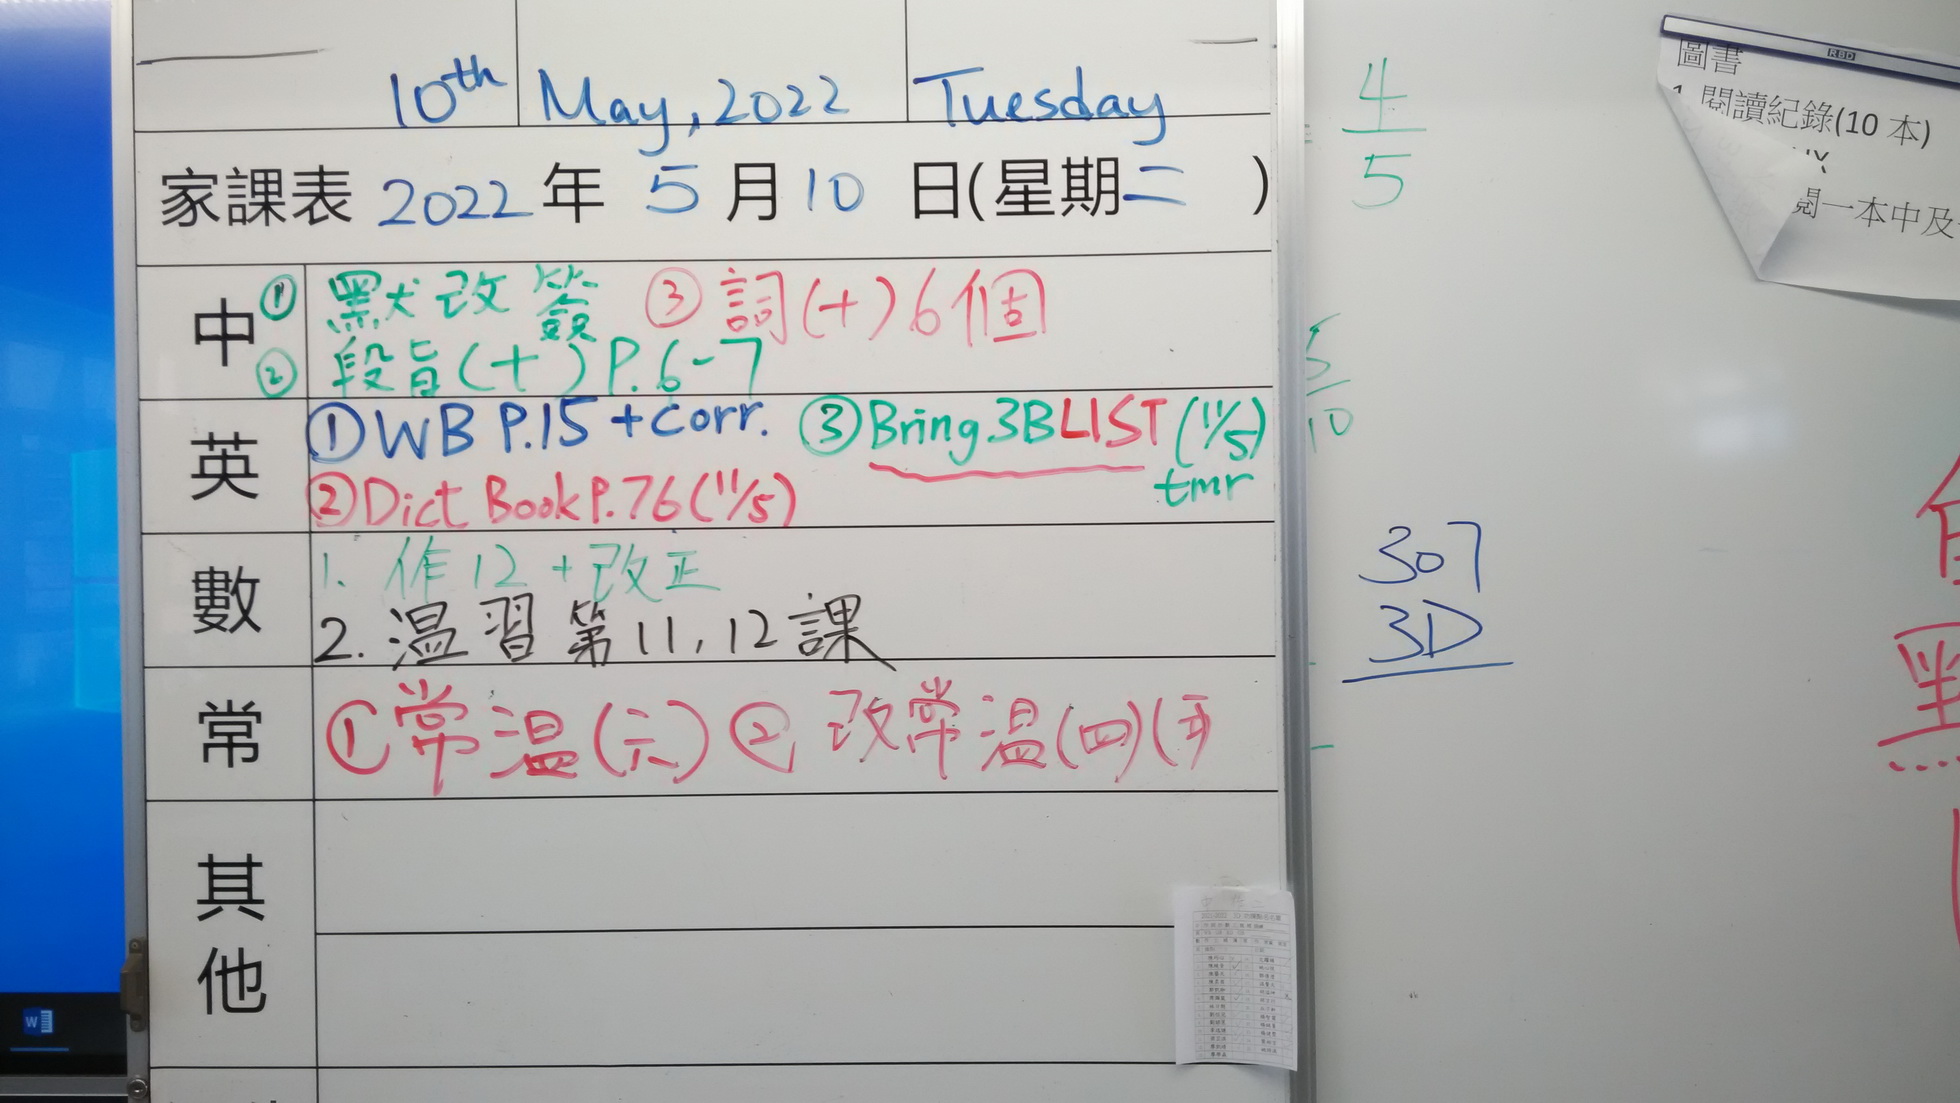 10th May, 2022 Tuesday
家課表 2022 年 5 月 10 日(星期二 )
中 ① 默改簽 ③ 詞(十)6個
② 段旨(十)P.6-7
英 ①WB P.15 +corr. ③Bring 3B LIST (11/5)
tmr
②Dict Book P.76 (11/5)
數 1. 作12 + 改正
2. 温習第11, 12課
常 ①常温(六) ② 改常温(四)(
其
他
4
5
5
10
307
3D
圖書
1. 閱讀紀錄(10 本)
一本中及
RBD
W